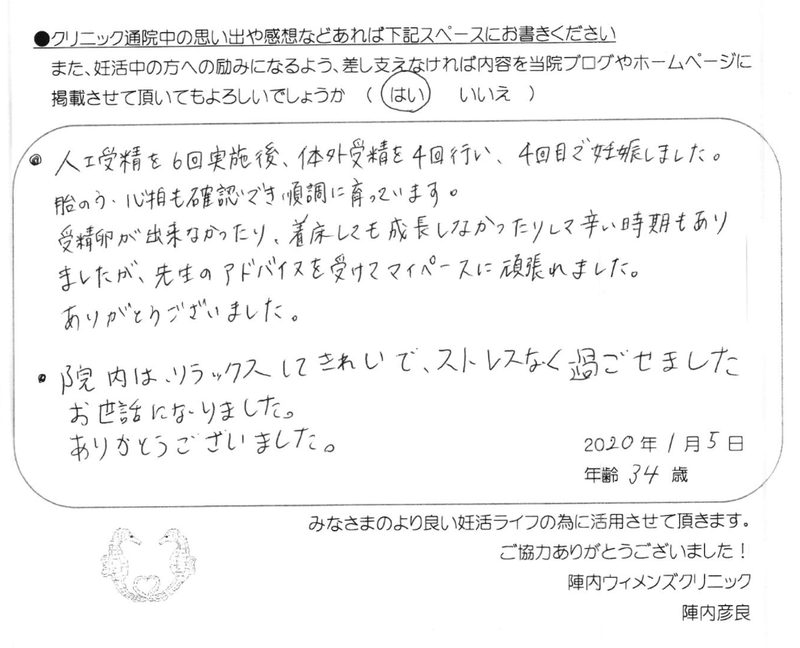 ●クリニック通院中の思い出や感想などあれば下記スペースにお書きください
また、妊活中の方への励みになるよう、差し支えなければ内容を当院ブログやホームページに
掲載させて頂いてもよろしいでしょうか （ はい いいえ ）
● 人工受精を6回実施後、体外受精を4回行い、4回目で妊娠しました。
胎のう・心拍も確認でき順調に育っています。
受精卵が出来なかったり、着床しても成長しなかったりして辛い時期もあり
ましたが、先生のアドバイスを受けてマイペースに頑張れました。
ありがとうございました。
● 院内は、リラックスしてきれいで、ストレスなく過ごせました
お世話になりました。
ありがとうございました。
2020年1月5日
年齢 34 歳
みなさまのより良い妊活ライフの為に活用させて頂きます。
ご協力ありがとうございました！
陣内ウィメンズクリニック
陣内彦良